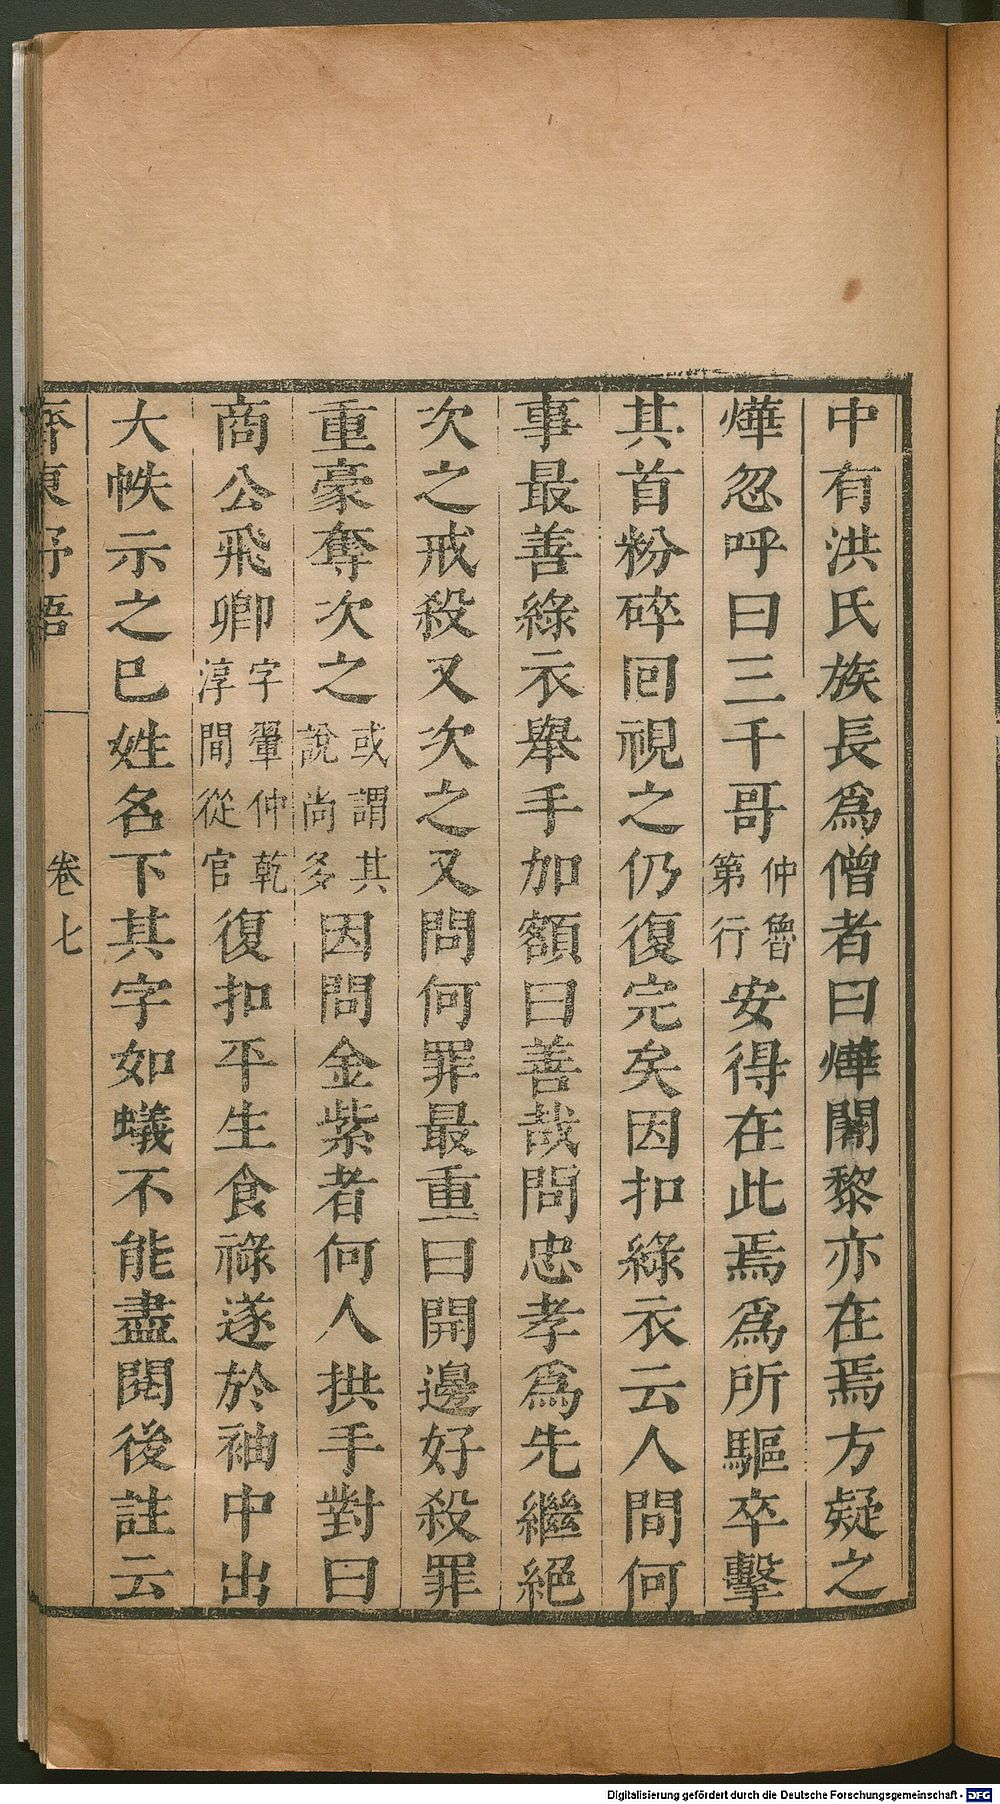 中有洪氏族長爲僧者曰燁闍黎亦在焉方疑之
燁忽呼曰三千哥仲魯第行安得在此焉爲所驅卒擊
其首粉碎回視之仍復完矣因扣綠衣云人間何
事最善綠衣舉手加額曰善哉問忠孝爲先繼絕
次之戒殺又次之又問何罪最重曰開邊好殺罪
重豪奪次之或謂其說尚多因問金紫者何人拱手對曰
商公飛卿字翬仲乾淳間從官復扣平生食祿遂於袖中出
大帙示之巳姓名下其字如蟻不能盡閱後註云
齊東野語
卷七
Digitalisierung gefördert durch die Deutsche Forschungsgemeinschaft - DFG